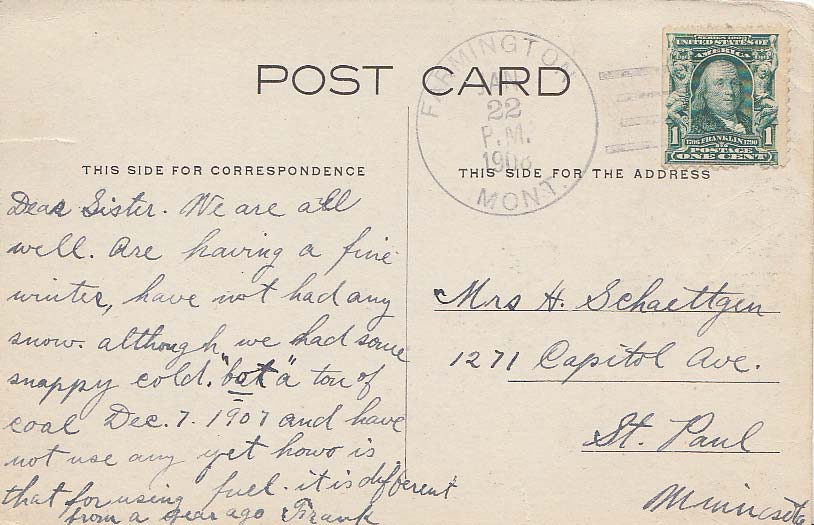 POST CARD
FARMINGTON
JAN
22
P.M.
1908
MONT.
SERIES 1902
UNITED STATES OF
AMERICA
1706 FRANKLIN 1790
1 1
POSTAGE
ONE CENT
THIS SIDE FOR CORRESPONDENCE
THIS SIDE FOR THE ADDRESS
Dear Sister. We are all
well. Are having a fine
winter, have not had any
snow. although, we had some
snappy cold. "bot" a ton of
coal Dec. 7. 1907 and have
not use any yet howo is
that for using fuel. it is different
from a year ago Frank
Mrs H. Schaettgen
1271 Capitol Ave.
St. Paul
Minnesota